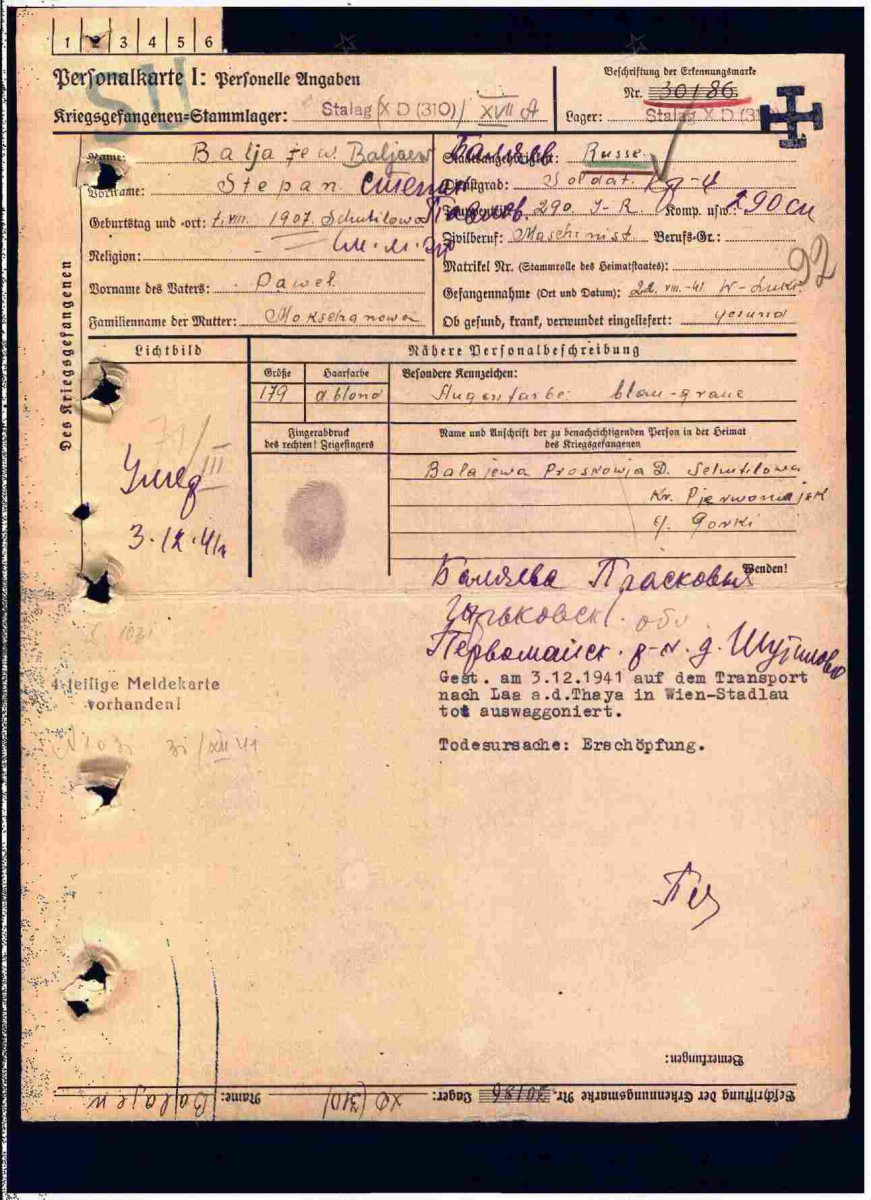 1 2 3 4 5 6
Personalkarte I: Personelle Angaben
Kriegsgefangenen-Stammlager: Stalag X D (310) / XVII A
Beschriftung der Erkennungsmarke
Nr. 30186
Lager: Stalag X D (310)
SU
Des Kriegsgefangenen
Name: Baljajew Baljaew Баляев
Vorname: Stepan Степан
Geburtstag und -ort: 1.VIII. 1907. Schutilowo
Religion: -
Vorname des Vaters: Pawel
Familienname der Mutter: Mokschanowa
Staatsangehörigkeit: Russe
Dienstgrad: Soldat. Кр-ц
Truppenteil: 290 I-R. Komp. usw.: 290 сп
Zivilberuf: Maschinist Berufs-Gr.:
Matrikel Nr. (Stammrolle des Heimatstaates):
Gefangennahme (Ort und Datum): 22. VIII.-41. W-Luki
Ob gesund, krank, verwundet eingeliefert: gesund
92
Lichtbild
Nähere Personalbeschreibung
Größe Haarfarbe Besondere Kennzeichen:
179 d.blond Augenfarbe: blau-graue
Fingerabdruck
des rechten! Zeigefingers
Name und Anschrift der zu benachrichtigenden Person in der Heimat
des Kriegsgefangenen
Balajewa Proskowja D. Schutilowa
Kr. Pjerwomajsk
G. Gorki
Умер
3.12.41г
Wenden!
Баляева Прасковья
Горьковск. обл
Первомайск. р-н. д. Шутилово
4-teilige Meldekarte
vorhanden!
Gest. am 3.12.1941 auf dem Transport
nach Laa a.d.Thaya in Wien-Stadlau
tot auswaggoniert.
Todesursache: Erschöpfung.
31/XII 41
Bemerkungen:
Beschriftung der Erkennungsmarke Nr. 30186 Lager: XD (310) Name: Balajew